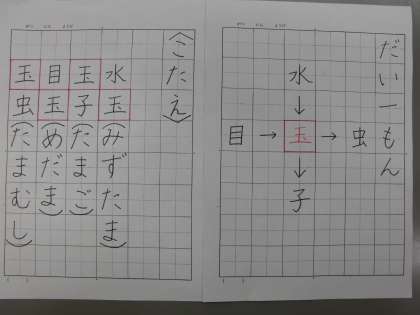 だい一もん
水
↓
目→玉→虫
↓
子
〈こたえ〉
水玉(みずたま)
玉子(たまご)
目玉(めだま)
玉虫(たまむし)